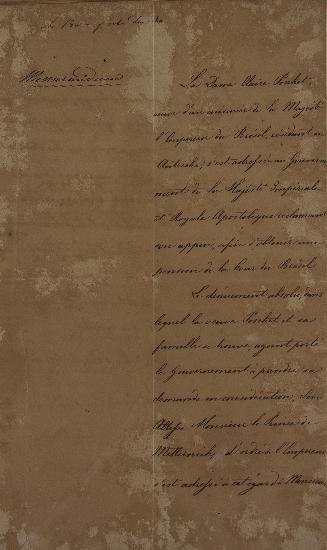 Memorandum
La Dame Claire Pochet
veuve d'un ministre de la Majesté
l'Empereur du Brésil, résidant en
Autriche, s'est adressée au Gouverne-
ment de Sa Majesté Impériale
et Royale Apostolique réclamant
son appui, afin d'obtenir une
pension de la Cour du Brésil
Le dénuement absolu, dans
lequel la veuve Pochet et sa
famille se trouve, ayant porté
le Gouvernement à prendre sa
demande en considération, Son
Altesse Monsieur le Prince de
Metternich, d'ordre l'Empereur
s'est adressé à cet égard à Monsieur